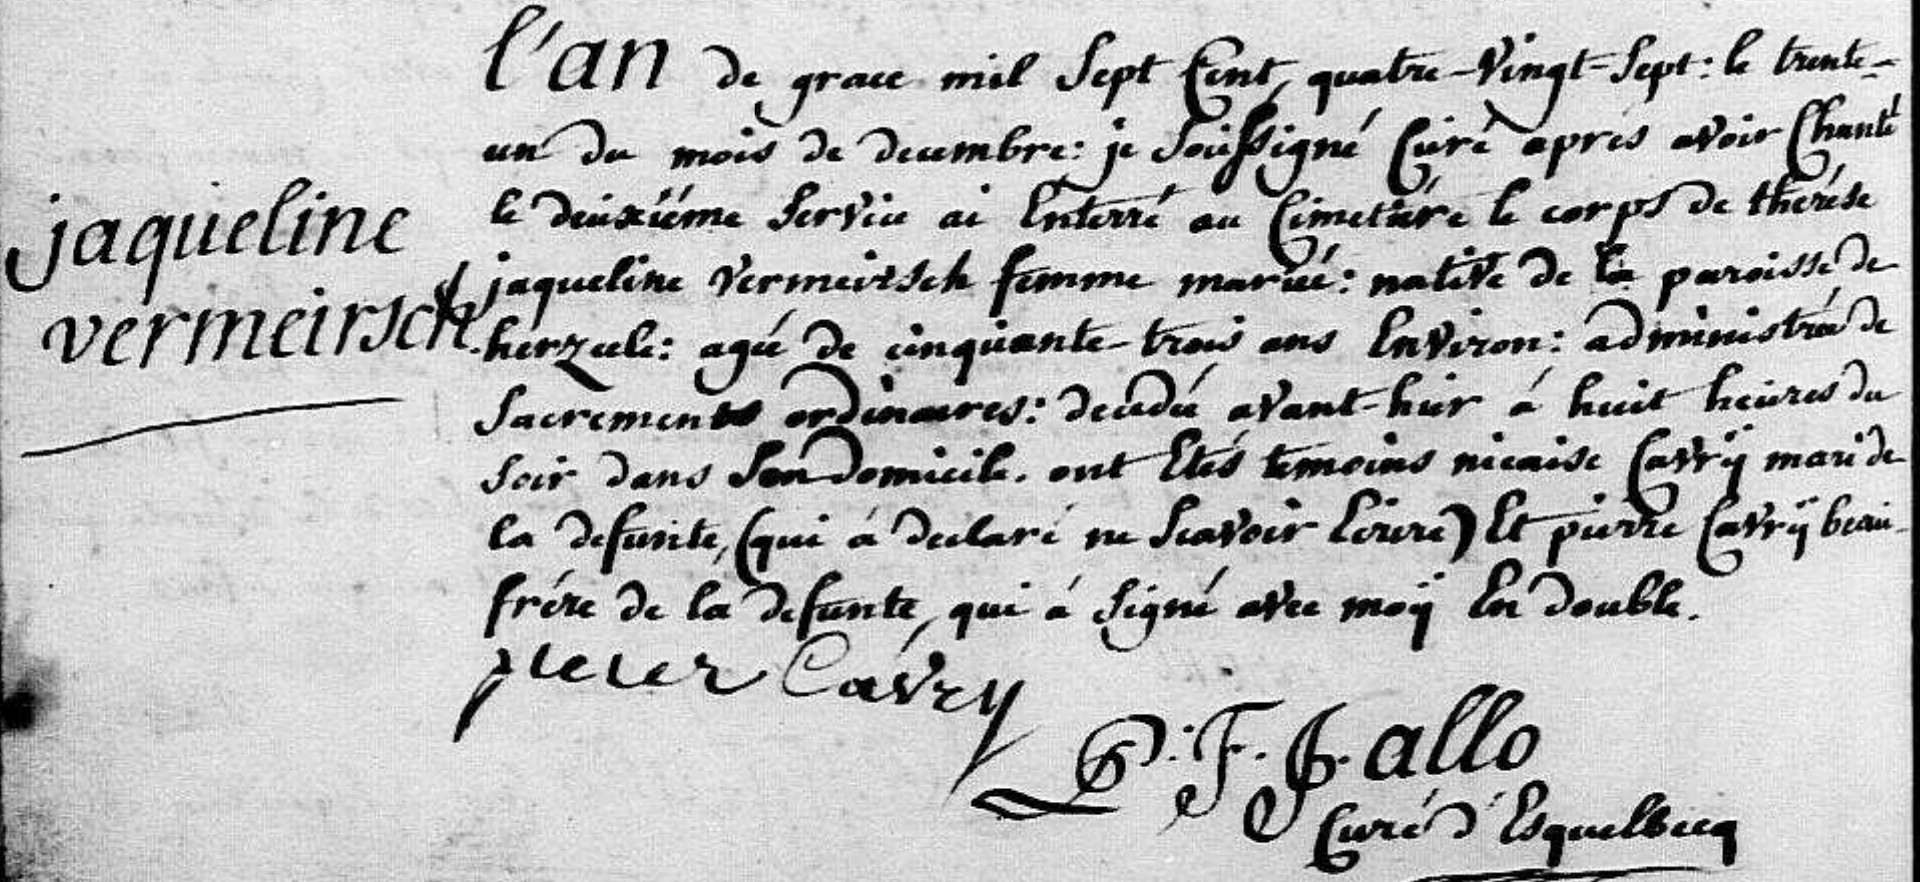 jaqueline
vermeirsch
l'an de grace mil Sept Cent, quatre-Vingt-Sept: le trente-
un du mois de decembre: je Soussigné Curé aprés avoir Chanté
le deuxiéme Service ai Enterré au Cimetiére le corps de thérése
jaqueline vermeirsch femme mariée: native de la paroisse de
herzeele: agée de cinquante-trois ans Environ: administrée de
Sacrements ordinaires: decedée avant-hier á huit heures du
Soir dans Son Domicile. ont Etés temoins nicaise Cavrÿ mari de
la defunte, (qui á declaré ne Scavoir Ecrire) Et pierre Cavrÿ beau-
frére de la defunte, qui á Signé avec moÿ En double.
pieter Cavry
P. F. J. allo
Curé d'Esquelbecq